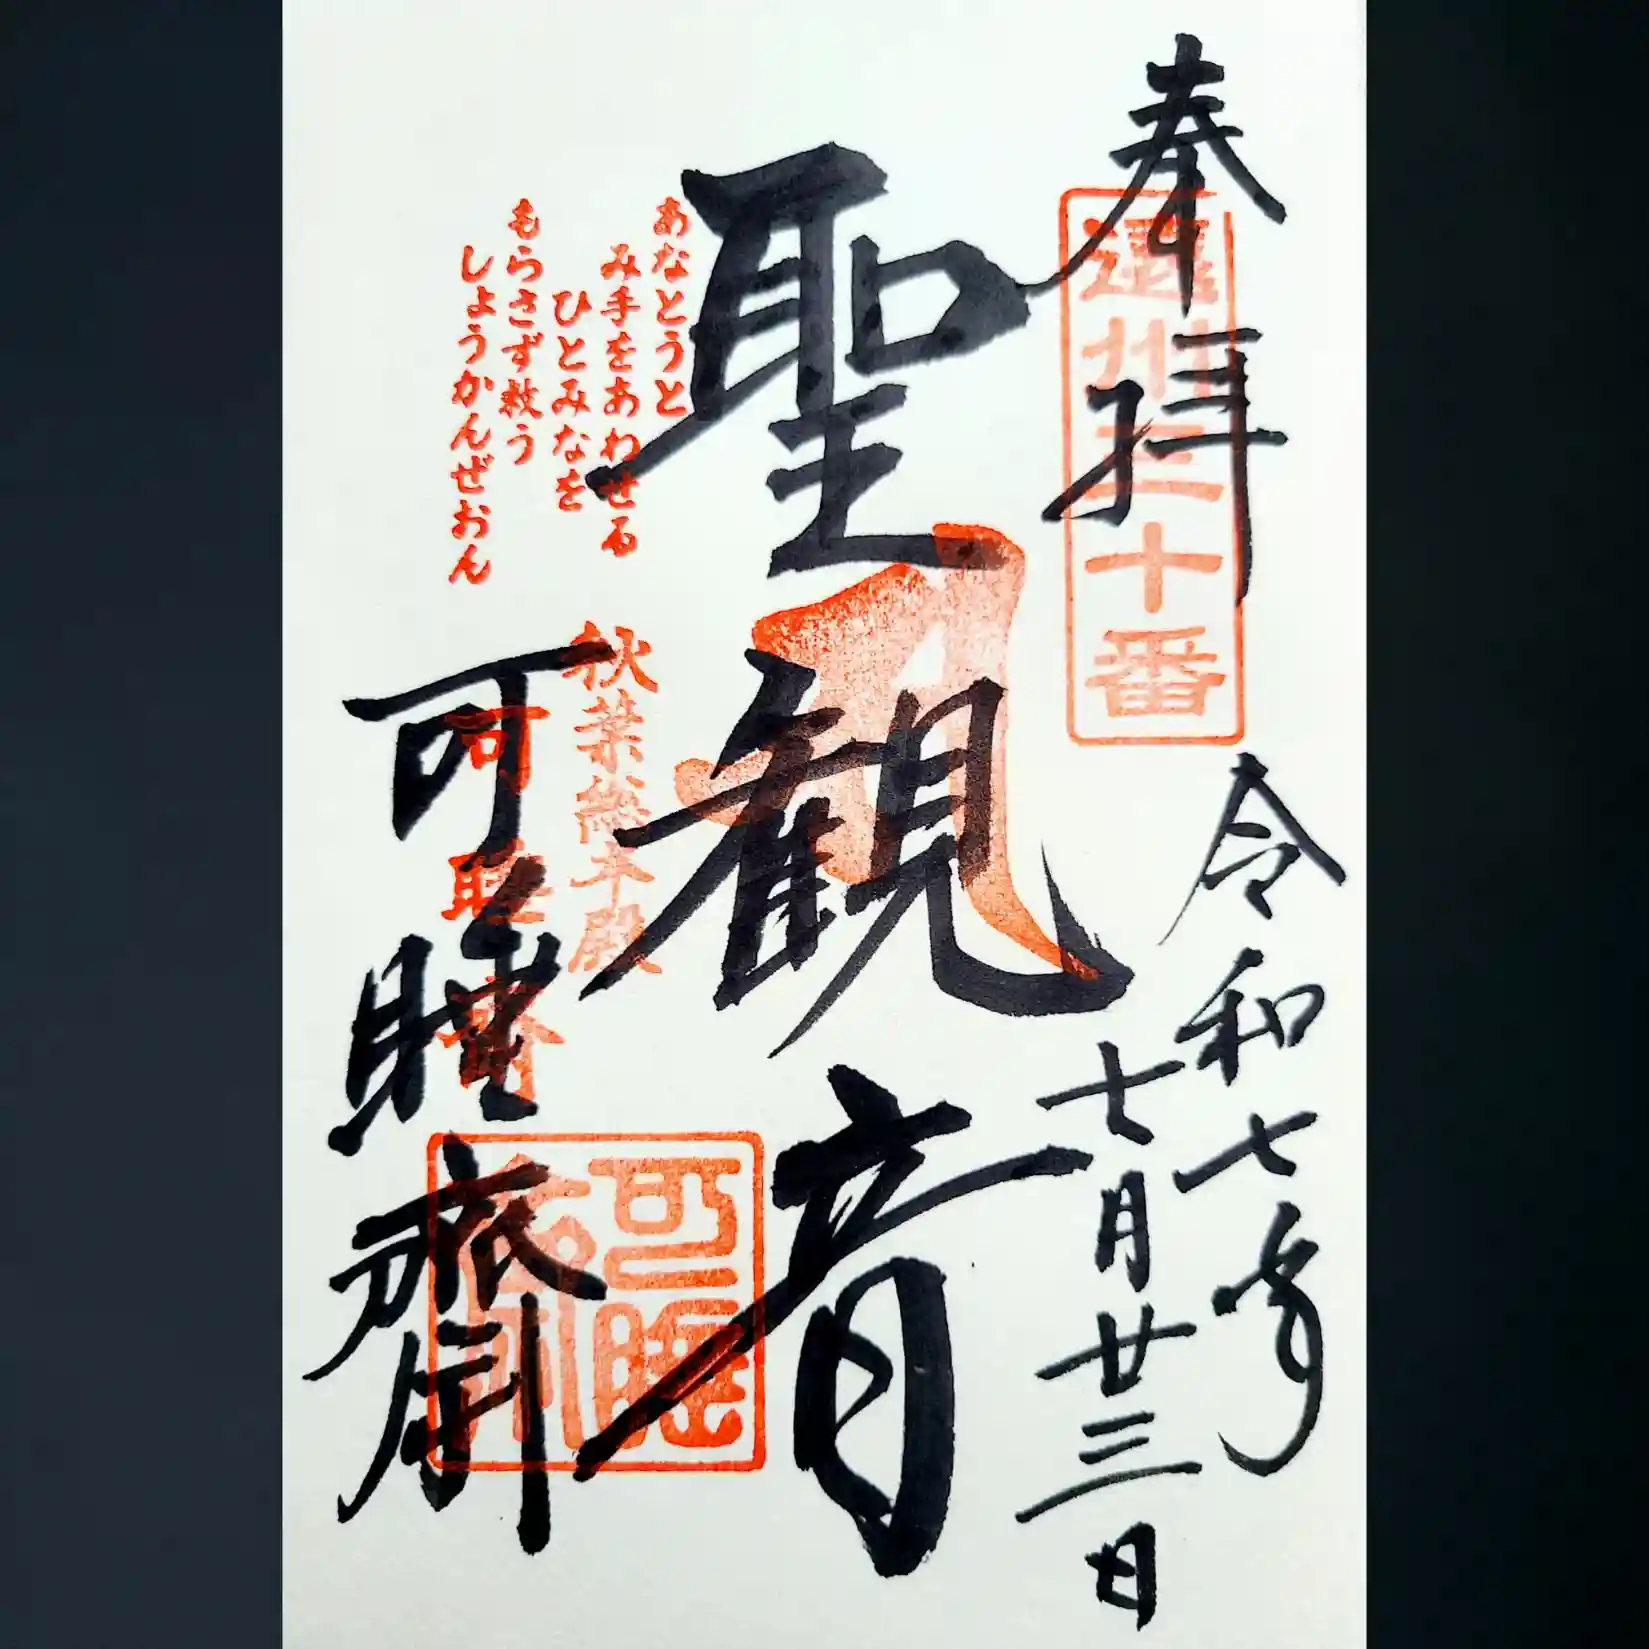 奉拝
遠州三十番
令和七年
七月廿三日
聖観音
あなとうと
み手をあわせる
ひとみなを
もらさず救う
しょうかんぜおん
秋葉総本殿
可睡斎
可睡齋
可睡